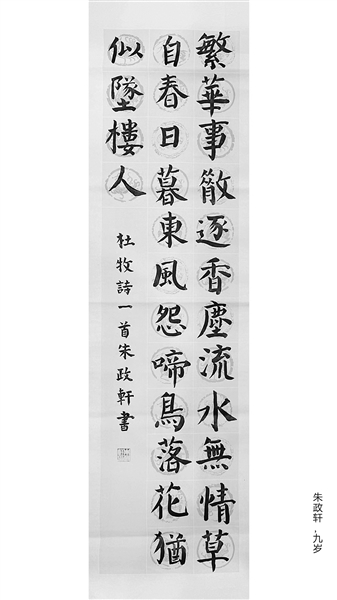 繁華事散逐香塵流水無情草
自春日暮東風怨啼鳥落花猶
似墜樓人
杜牧詩一首朱政軒書
朱政轩，九岁